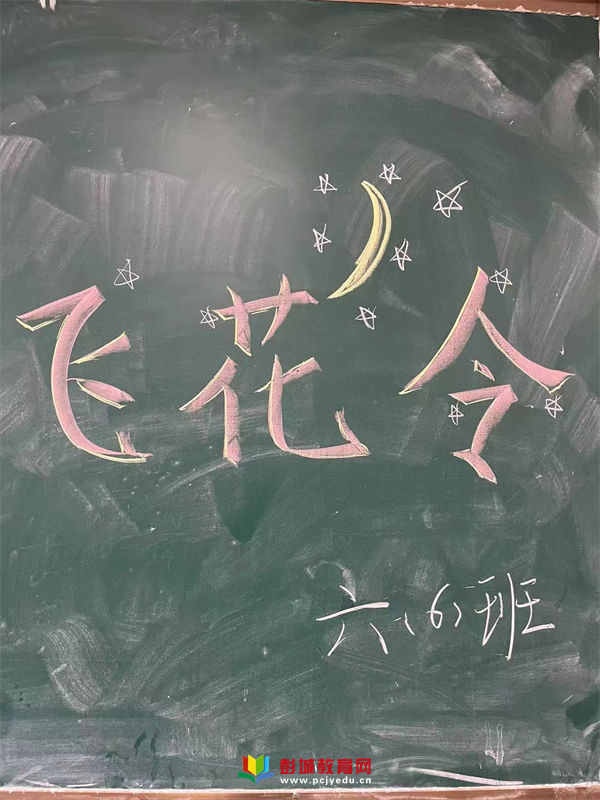 飞花令
六(6)班
彭城教育网
www.pcjyedu.cn